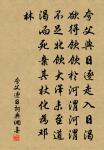 夸父與日逐走入日渴
欲得飲飲於河渭河渭
不足北飲大澤未至道
渴而死棄其杖化為鄧
林
夸父逐日詞典網書